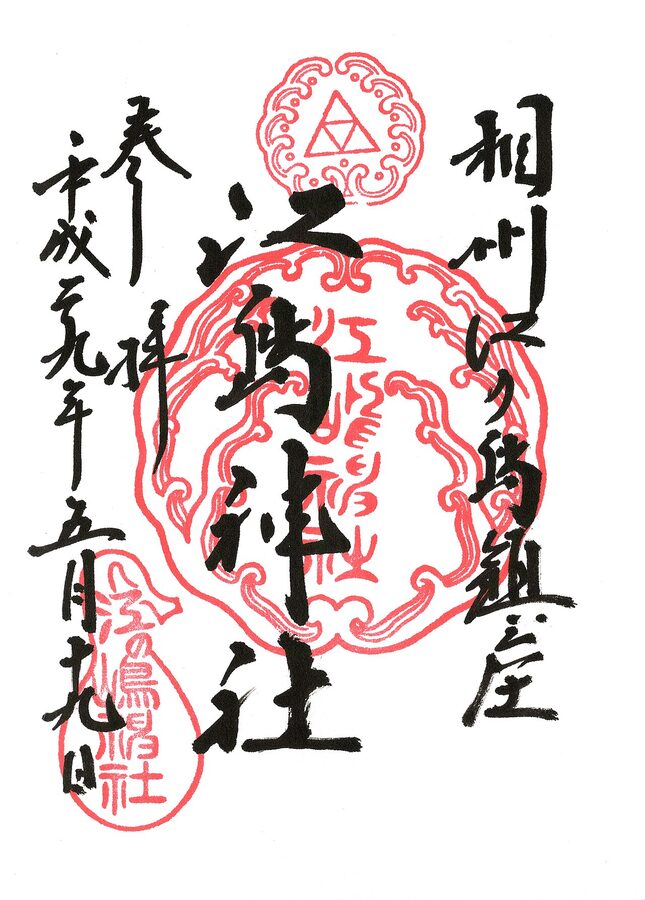 相州江の島鎮座
江島神社
奉拝
平成二九年五月十九日
江嶋神社
江の嶋神社